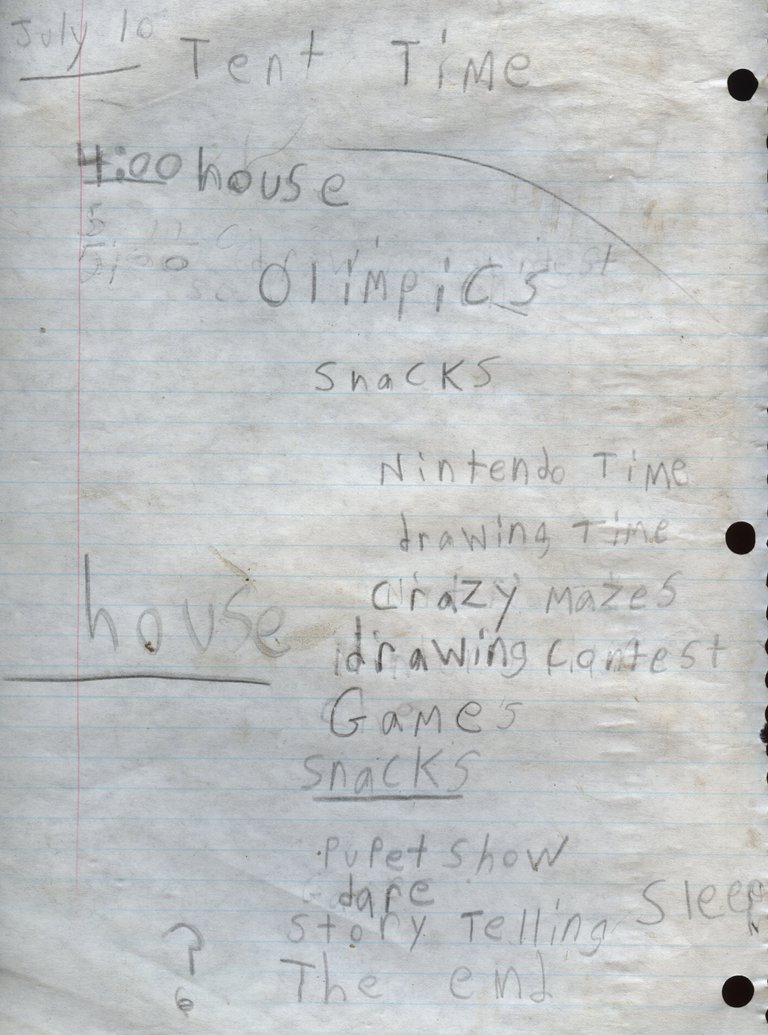 July 10
Tent Time
4:00 house
5
5:00
Olimpics
snacks
Nintendo Time
drawing Time
crazy mazes
house
drawing contest
Games
snacks
pupet show
dare
Sleep
story Telling
?
The end